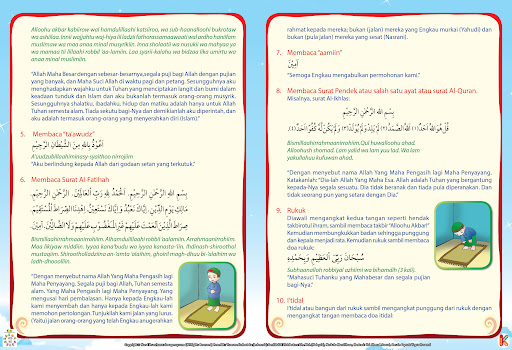 Alloohu akbar kabiirow wal hamdulillaahi katsiroo, wa sub-haanallohi bukrotaw
wa ashiilaa. Innii wajjahtu waj-hiya lilladzii fatharos samaawaati wal ardha haniifam
muslimaw wa maa anaa minal musyrikiin. Inna sholaatii wa nusukii wa mahyaa ya
wa mamaatii lillaahi robbil 'aa-lamiin. Laa syarikalahu wa bidzaa lika umirtu wa
anaa minal muslimiin.
"Allah Maha Besar dengan sebesar-besarnya, segala puji bagi Allah dengan pujian
yang banyak, dan Maha Suci Allah di waktu pagi dan petang. Sesungguhnya aku
menghadapkan wajahku untuk Tuhan yang menciptakan langit dan bumi dalam
keadaan tunduk dan Islam dan aku bukanlah termasuk orang-orang musyrik.
Sesungguhnya shalatku, ibadahku, hidup dan matiku adalah hanya untuk Allah
Tuhan semesta alam. Tiada sekutu bagi-Nya dan demikianlah aku diperintah, dan
aku adalah termasuk orang-orang yang menyerahkan diri (Islam)."
5. Membaca "ta'awudz"
أَعُوْذُ بِاللهِ مِنَ الشَّيْطَانِ الرَّجِيْمِ
A'uudzubillaahiminasy-syaithon nirrojiim
"Aku berlindung kepada Allah dari godaan setan yang terkutuk."
6. Membaca Surat Al-Fatihah
بِسْمِ اللهِ الرَّحْمٰنِ الرَّحِيْمِ. اَلْحَمْدُ لِلّٰهِ رَبِّ الْعَالَمِيْنَ. الرَّحْمٰنِ الرَّحِيْمِ.
مَالِكِ يَوْمِ الدِّيْنِ. إِيَّاكَ نَعْبُدُ وَإِيَّاكَ نَسْتَعِيْنُ. اِهْدِنَا الصِّرَاطَ الْمُسْتَقِيْمَ
صِرَاطَ الَّذِيْنَ أَنْعَمْتَ عَلَيْهِمْ غَيْرِ الْمَغْضُوْبِ عَلَيْهِمْ وَلَا الضَّآلِّيْنَ.
Bismillaahirrahmaanirrahiim. Alhamdulillaahi robbil 'aalamiin. Arrahmaanirrahiim.
Maa likiyaw middiin. Iyyaa kana'budu wa iyyaa kanasta-'iin. Ihdinash shiroothol
mustaqiim. Shiroothol ladziina an-'amta 'alaihim, ghoiril magh-dhuu bi-'alaihim wa
ladh-dhooolliin.
"Dengan menyebut nama Allah Yang Maha Pengasih lagi
Maha Penyayang, Segala puji bagi Allah, Tuhan semesta
alam. Yang Maha Pengasih lagi Maha Penyayang. Yang
menguasai hari pembalasan. Hanya kepada Engkau-lah
kami menyembah dan hanya kepada Engkau-lah kami
memohon pertolongan. Tunjukilah kami jalan yang lurus.
(Yaitu) jalan orang-orang yang telah Engkau anugerahkan
rahmat kepada mereka; bukan (jalan) mereka yang Engkau murkai (Yahudi) dan
bukan (pula jalan) mereka yang sesat (Nasrani).
7. Membaca "aamiin"
آمِيْن
"Semoga Engkau mengabulkan permohonan kami."
8. Membaca Surat Pendek atau salah satu ayat atau surat Al-Quran.
Misalnya, surat Al-Ikhlas:
بِسْمِ اللهِ الرَّحْمٰنِ الرَّحِيْمِ
قُلْ هُوَ اللهُ أَحَدٌ ﴿١﴾ اَللهُ الصَّمَدُ ﴿٢﴾ لَمْ يَلِدْ وَلَمْ يُوْلَدْ ﴿٣﴾ وَلَمْ يَكُنْ لَّهُ كُفُوًا أَحَدٌ ﴿٤﴾.
Bismillaahirrahmaanirrohim. Qul huwalloohu ahad.
Alloohush shomad. Lam yalid wa lam yuu lad. Wa lam
yakullahuu kufuwan ahad.
"Dengan menyebut nama Allah Yang Maha Pengasih lagi Maha Penyayang.
Katakanlah: "Dia-lah Allah Yang Maha Esa. Allah adalah Tuhan yang bergantung
kepada-Nya segala sesuatu. Dia tidak beranak dan tiada pula diperanakan. Dan
tidak seorang pun yang setara dengan Dia."
9. Rukuk
Diawali mengangkat kedua tangan seperti hendak
takbirotul ihram, sambil membaca takbir "Alloohu Akbar!"
Kemudian membungkukkan badan sehingga punggung
dan kepala menjadi rata. Kemudian rukuk sambil membaca
doa rukuk:
سُبْحَانَ رَبِّيَ الْعَظِيْمِ وَبِحَمْدِهِ
Subhaanallah robbiyal adziimi wa bihamdih (3 kali).
"Mahasuci Tuhanku yang Mahabesar dan segala pujian
bagi-Nya."
10. I'tidal
I'tidal atau bangun dari rukuk sambil mengangkat punggung dari rukuk dengan
mengangkat tangan membaca doa itidal: